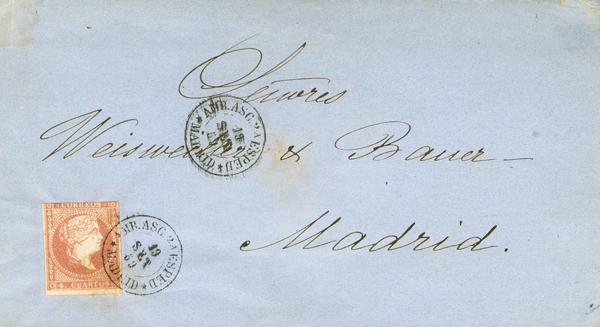 Señores
Weisweiller & Bauer
Madrid.
AMB.ASC.2A ESPED * MADRID *
19
SET
59
CORREOS
4 CUARTOS
AMB.ASC.2A ESPED * MADRID *
19
SET
59